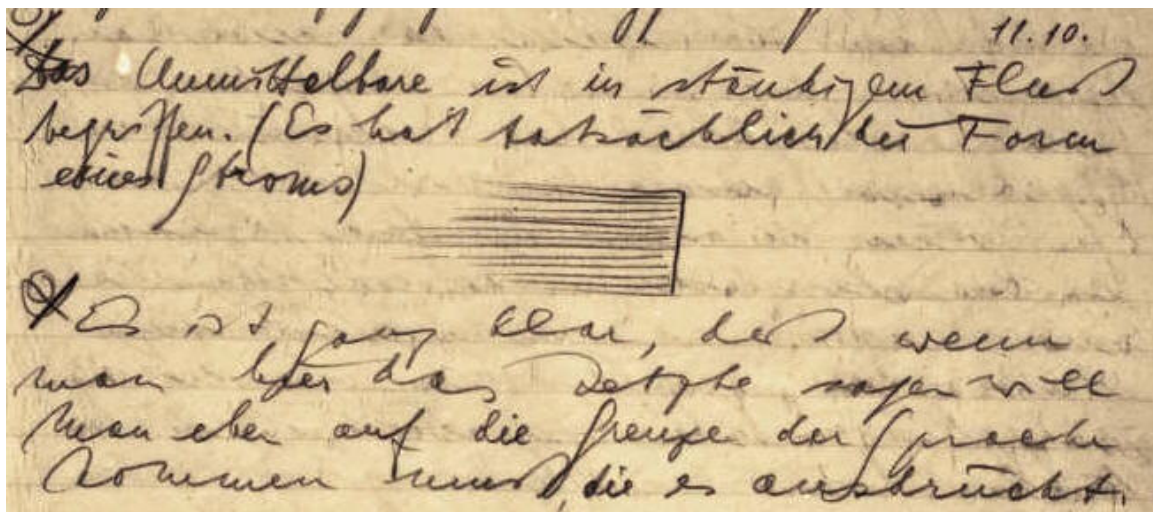 11.10.
Das Unmittelbare ist in ständigem Fluß
begriffen. (Es hat tatsächlich die Form
eines Stroms)
Es ist ganz klar, daß wenn
man hier das Letzte sagen will
man eben auf die Grenze der Sprache
kommen muß, die es ausdrückt.